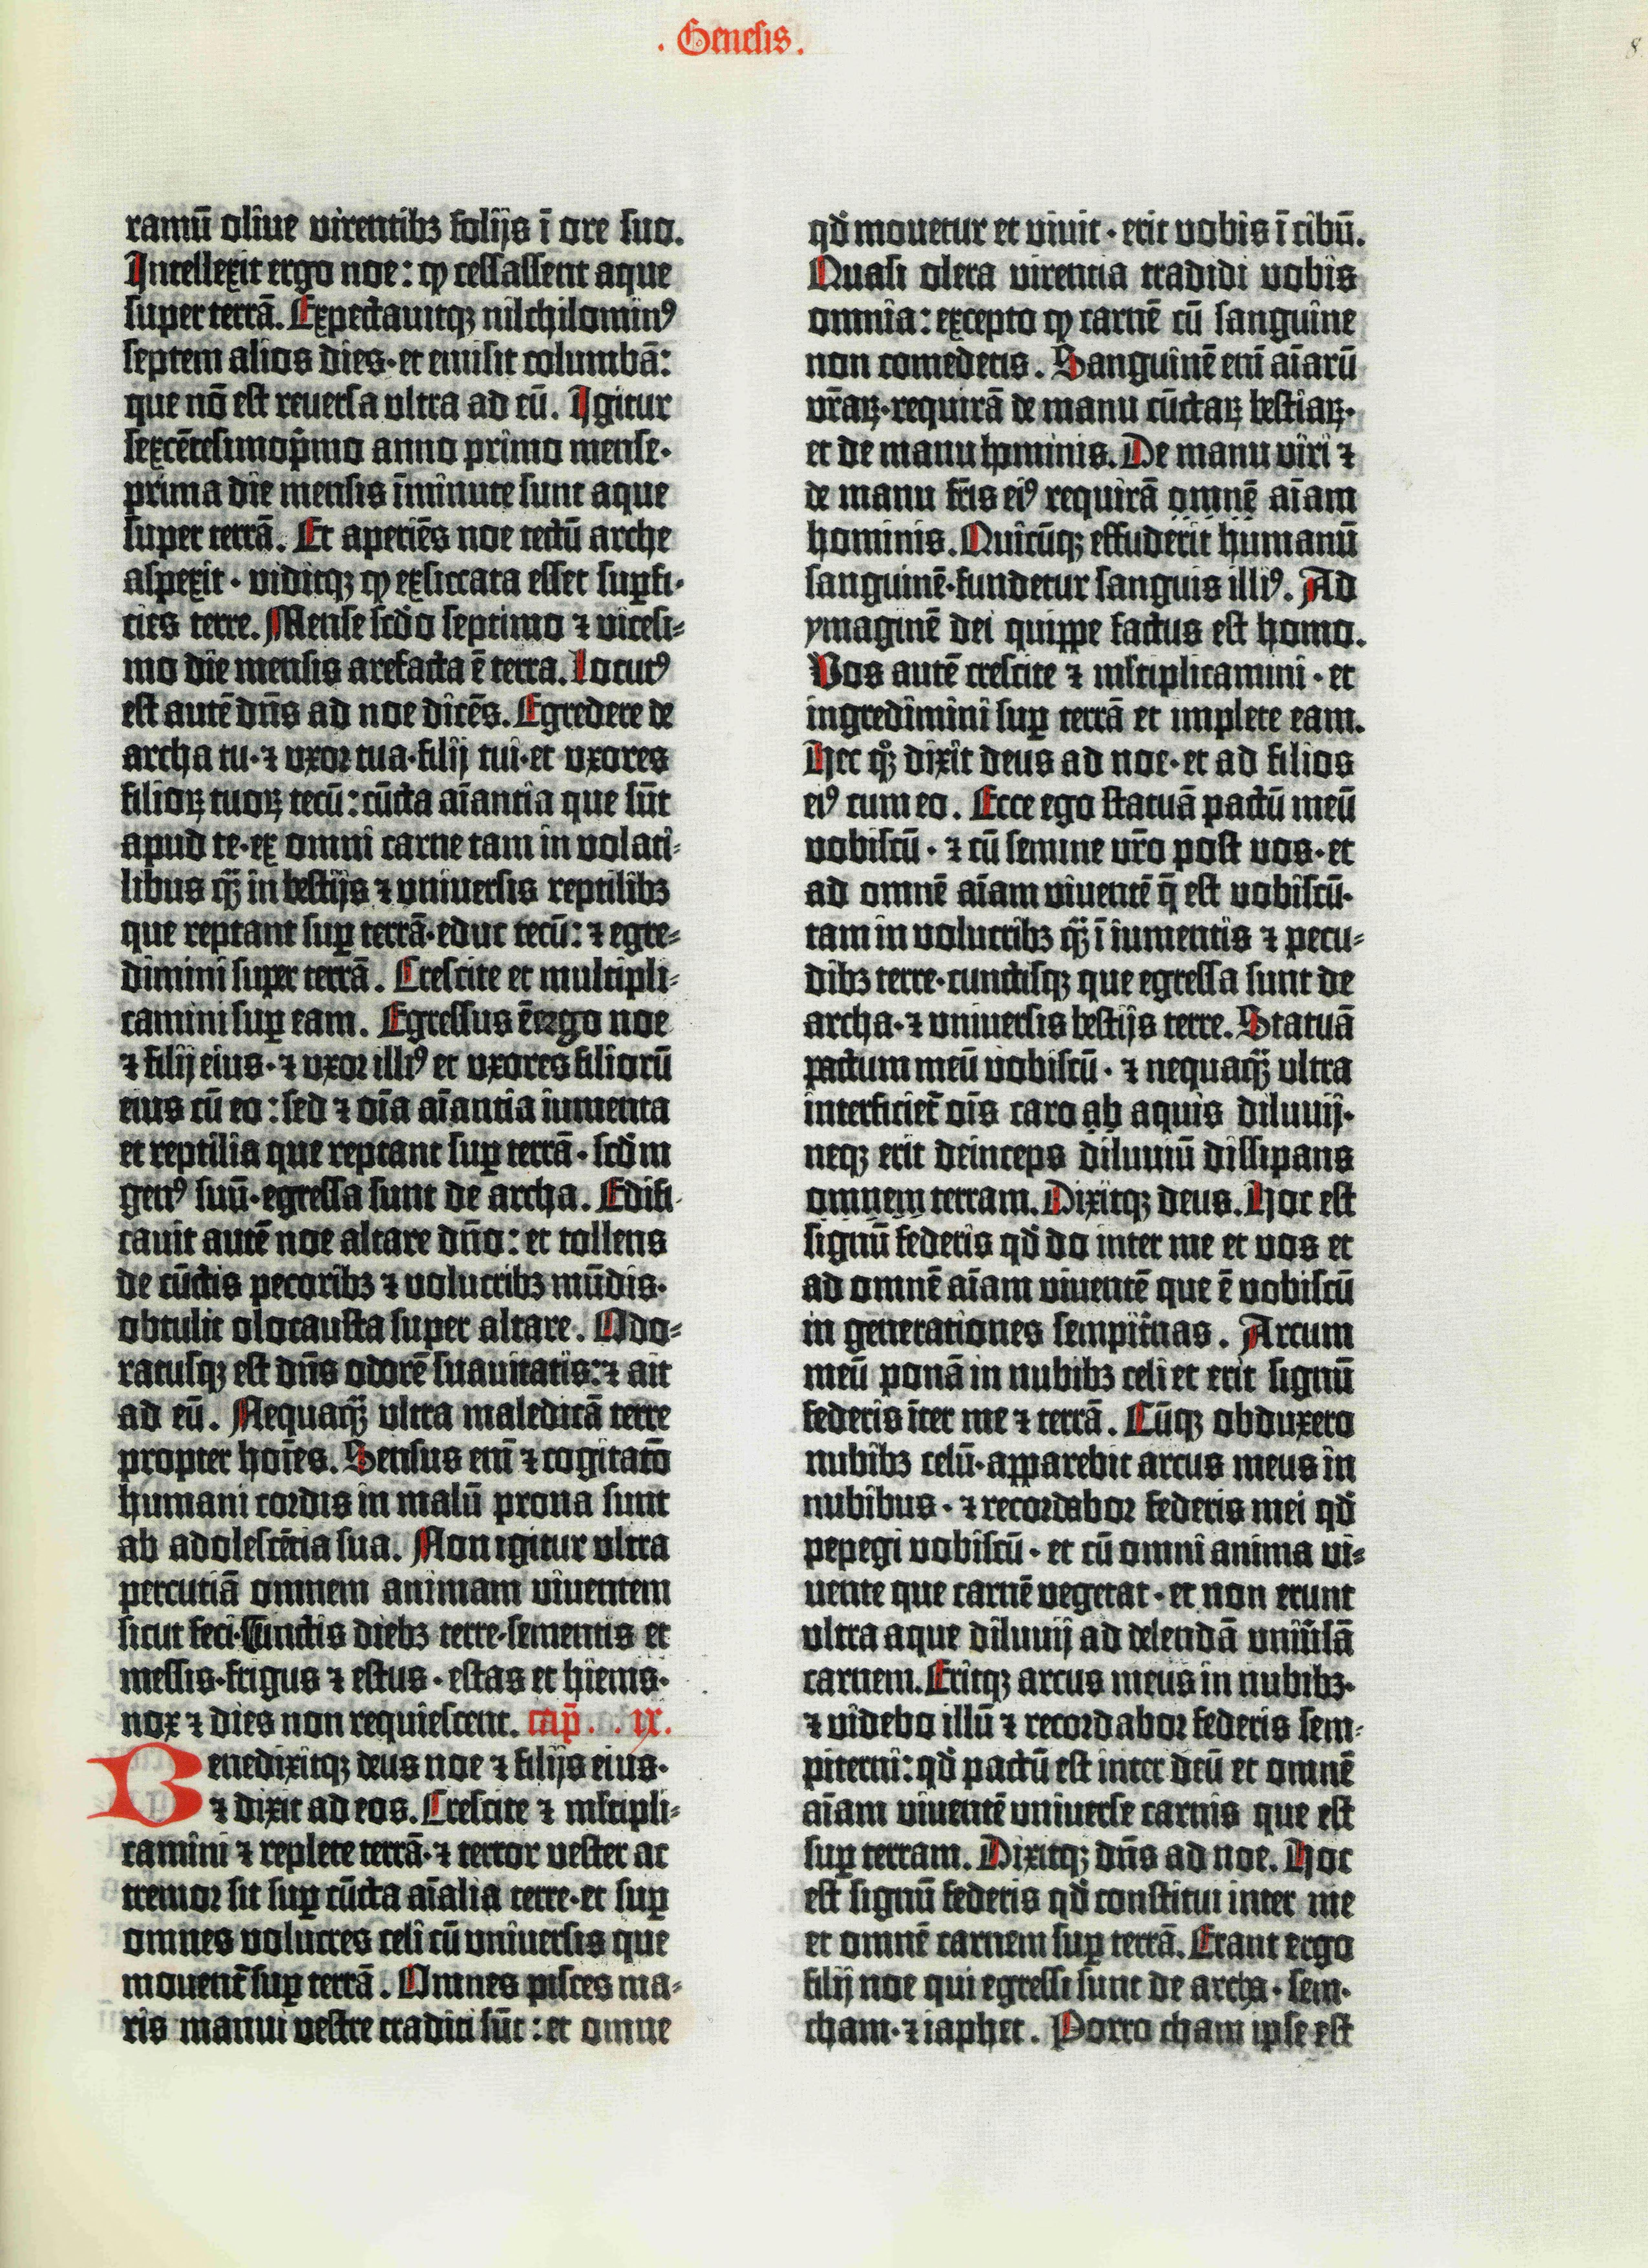 . Genesis.
8
ramū oliue virentibꝫ folijs ī ore suo.
Intellexit ergo noe: ꝙ cessassent aque
super terrā. Expectauitqꝫ nilchilominꝰ
septem alios dies· et emisit columbā:
que nō est reuersa vltra ad eū. Igitur
sexcētesimop̄mo anno primo mense·
prima die mensis īminute sunt aque
super terrā. Et aperiēs noe tectū arche
aspexit· viditqꝫ ꝙ exsiccata esset suꝑfi-
cies terre. Mense scd̄o septimo ⁊ vicesi-
mo die mensis arefacta ē terra. Locutꝰ
est autē dn̄s ad noe dicēs. Egredere de
archa tu· ⁊ vxor tua· filij tui· et vxores
filioꝝ tuoꝝ tecū: cūcta aīantia que sūt
apud te· ex omni carne tam in volati-
libus qꝫ̄ in bestijs ⁊ vniuersis reptilibꝫ
que reptant suꝑ terrā· educ tecū: ⁊ egre-
dimini super terrā. Crescite et multipli-
camini suꝑ eam. Egressus ē ergo noe
⁊ filij eius· ⁊ vxor illiꝰ et vxores filiorū
eius cū eo: sed ⁊ oīa aīantia iumenta
et reptilia que reptant suꝑ terrā· scd̄m
genꝰ suū· egressa sunt de archa. Edifi-
cauit autē noe altare dn̄o: et tollens
de cūctis pecoribꝫ ⁊ volucribꝫ mūdis·
obtulit olocausta super altare. Odo-
ratusqꝫ est dn̄s odorē suauitatis: ⁊ ait
ad eū. Nequaqꝫ̄ vltra maledicā terre
propter hoīes. Sensus eni̅ ⁊ cogitato̅
humani cordis in malū prona sunt
ab adolescētia sua. Non igitur vltra
percutiā omnem animam viuentem
sicut feci. Cunctis diebꝫ terre· sementis et
messis· frigus ⁊ estus· estas et hiems·
nox ⁊ dies non requiescent. cap̄. . ix.
Benedixitqꝫ deus noe ⁊ filijs eius·
⁊ dixit ad eos. Crescite ⁊ ml̄tipli-
camini ⁊ replete terrā· ⁊ terror vester ac
tremor sit suꝑ cūcta aīalia terre· et suꝑ
omnes volucres celi cū vniuersis que
mouent̄ suꝑ terrā. Omnes pisces ma-
ris manui vestre traditi sūt: et omne
qd̄ mouetur et viuit· erit vobis ī cibū.
Quasi olera virentia tradidi vobis
omnia: excepto ꝙ carnē cū sanguine
non comedetis. Sanguinē eni̅ aīarū
vr̄aꝝ· requirā de manu cūctaꝝ bestiaꝝ·
et de manu hominis. De manu viri ⁊
de manu fr̄is eiꝰ requirā omnē aīam
hominis. Quicūqꝫ effuderit humanū
sanguinē· fundetur sanguis illiꝰ. Ad
ymaginē dei quippe factus est homo.
Vos autē crescite ⁊ ml̄tiplicamini· et
ingredimini suꝑ terrā et implete eam.
Hec qꝫͦ dixit deus ad noe· et ad filios
eiꝰ cum eo. Ecce ego statuā pactū meū
vobiscū· ⁊ cū semine vr̄o post vos· et
ad omnē aīam viuentē q̄ est vobiscū·
tam in volucribꝫ qꝫ̄ ī iumentis ⁊ pecu-
dibꝫ terre· cunctisqꝫ que egressa sunt de
archa· ⁊ vniuersis bestijs terre. Statuā
pactum meū vobiscū· ⁊ nequaqꝫ̄ vltra
interficiet̄ oīs caro ab aquis diluuij·
neqꝫ erit deinceps diluuiū dissipans
omnem terram. Dixitqꝫ deus. Hoc est
signū federis qd̄ do inter me et vos et
ad omnē aīam viuentē que ē vobiscū
in generationes sempit̄nas. Arcum
meū ponā in nubibꝫ celi et erit signū
federis īter me ⁊ terrā. Cūqꝫ obduxero
nubibꝫ celū· apparebit arcus meus in
nubibus· ⁊ recordabor federis mei qd̄
pepegi vobiscū· et cū omni anima vi-
uente que carnē vegetat· et non erunt
vltra aque diluuij ad delendā vniu̅sā
carnem. Eritqꝫ arcus meus in nubibꝫ·
⁊ videbo illū ⁊ recordabor federis sem-
piterni: qd̄ pactū est inter deū et omnē
aīam viuentē vniuerse carnis que est
suꝑ terram. Dixitqꝫ dn̄s ad noe. Hoc
est signū federis qd̄ constitui inter me
et omnē carnem suꝑ terrā. Erant ergo
filij noe qui egressi sunt de archa· sem·
cham· ⁊ iaphet. Porro cham ipse est